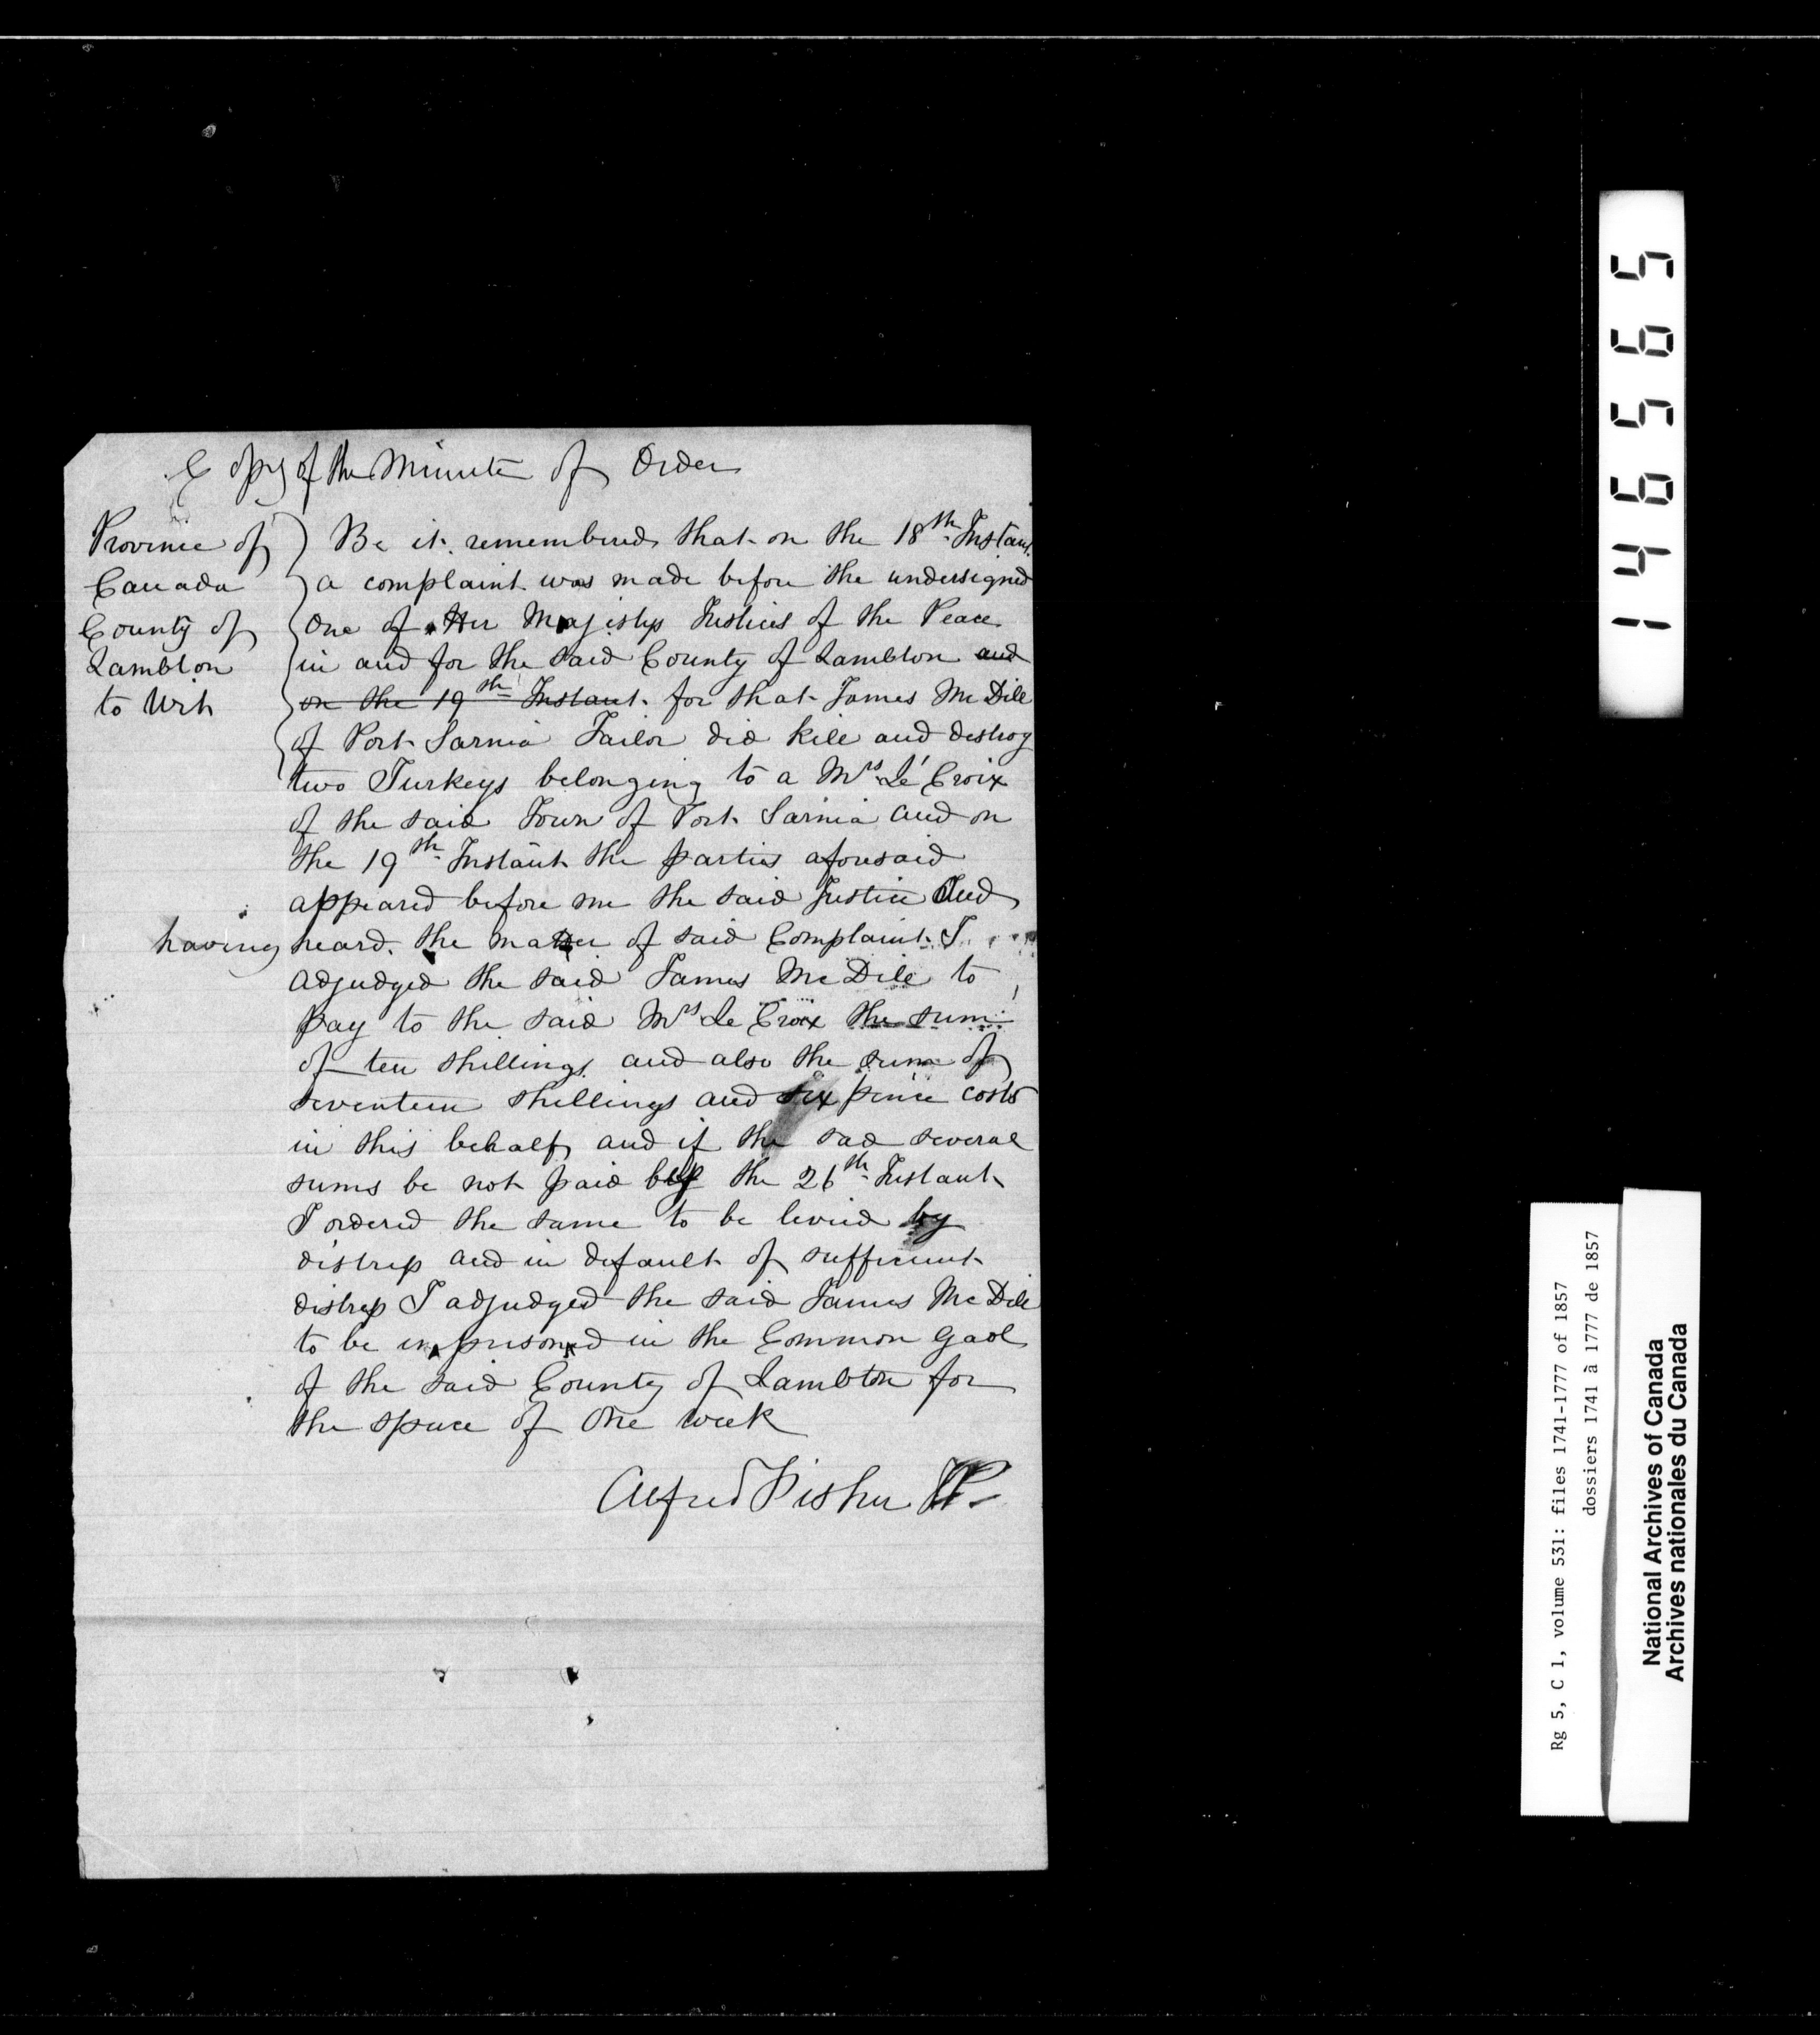 Copy of the Minute of Order
Province of
Canada
County of
Lambton
to Wit
Be it remembered that on the 18th Instant
a complaint was made before the undersigned
One of Her Majestys Justices of the Peace
in and for the said County of Lambton and
on the 19th Instant for that James McDill
of Port Sarnia Tailor did kill and destroy
two Turkeys belonging to a Mrs Le Croix
of the said Town of Port Sarnia and on
the 19th Instant the parties aforesaid
appeared before me the said Justice And
having heard the matter of said Complaint I
adjudged the said James McDill to
pay to the said Mrs Le Croix the sum
of ten shillings and also the sum of
seventeen shillings and six pence costs
in this behalf and if the sad several
sums be not paid by the 26th Instant
I ordered the same to be levied by
distress and in default of sufficient
distress I adjudged the said James McDill
to be imprisoned in the Common Gaol
of the said County of Lambton for
the space of One week
Alfred Fisher JP
146565
Rg 5, C 1, volume 531: files 1741-1777 of 1857
dossiers 1741 à 1777 de 1857
National Archives of Canada
Archives nationales du Canada